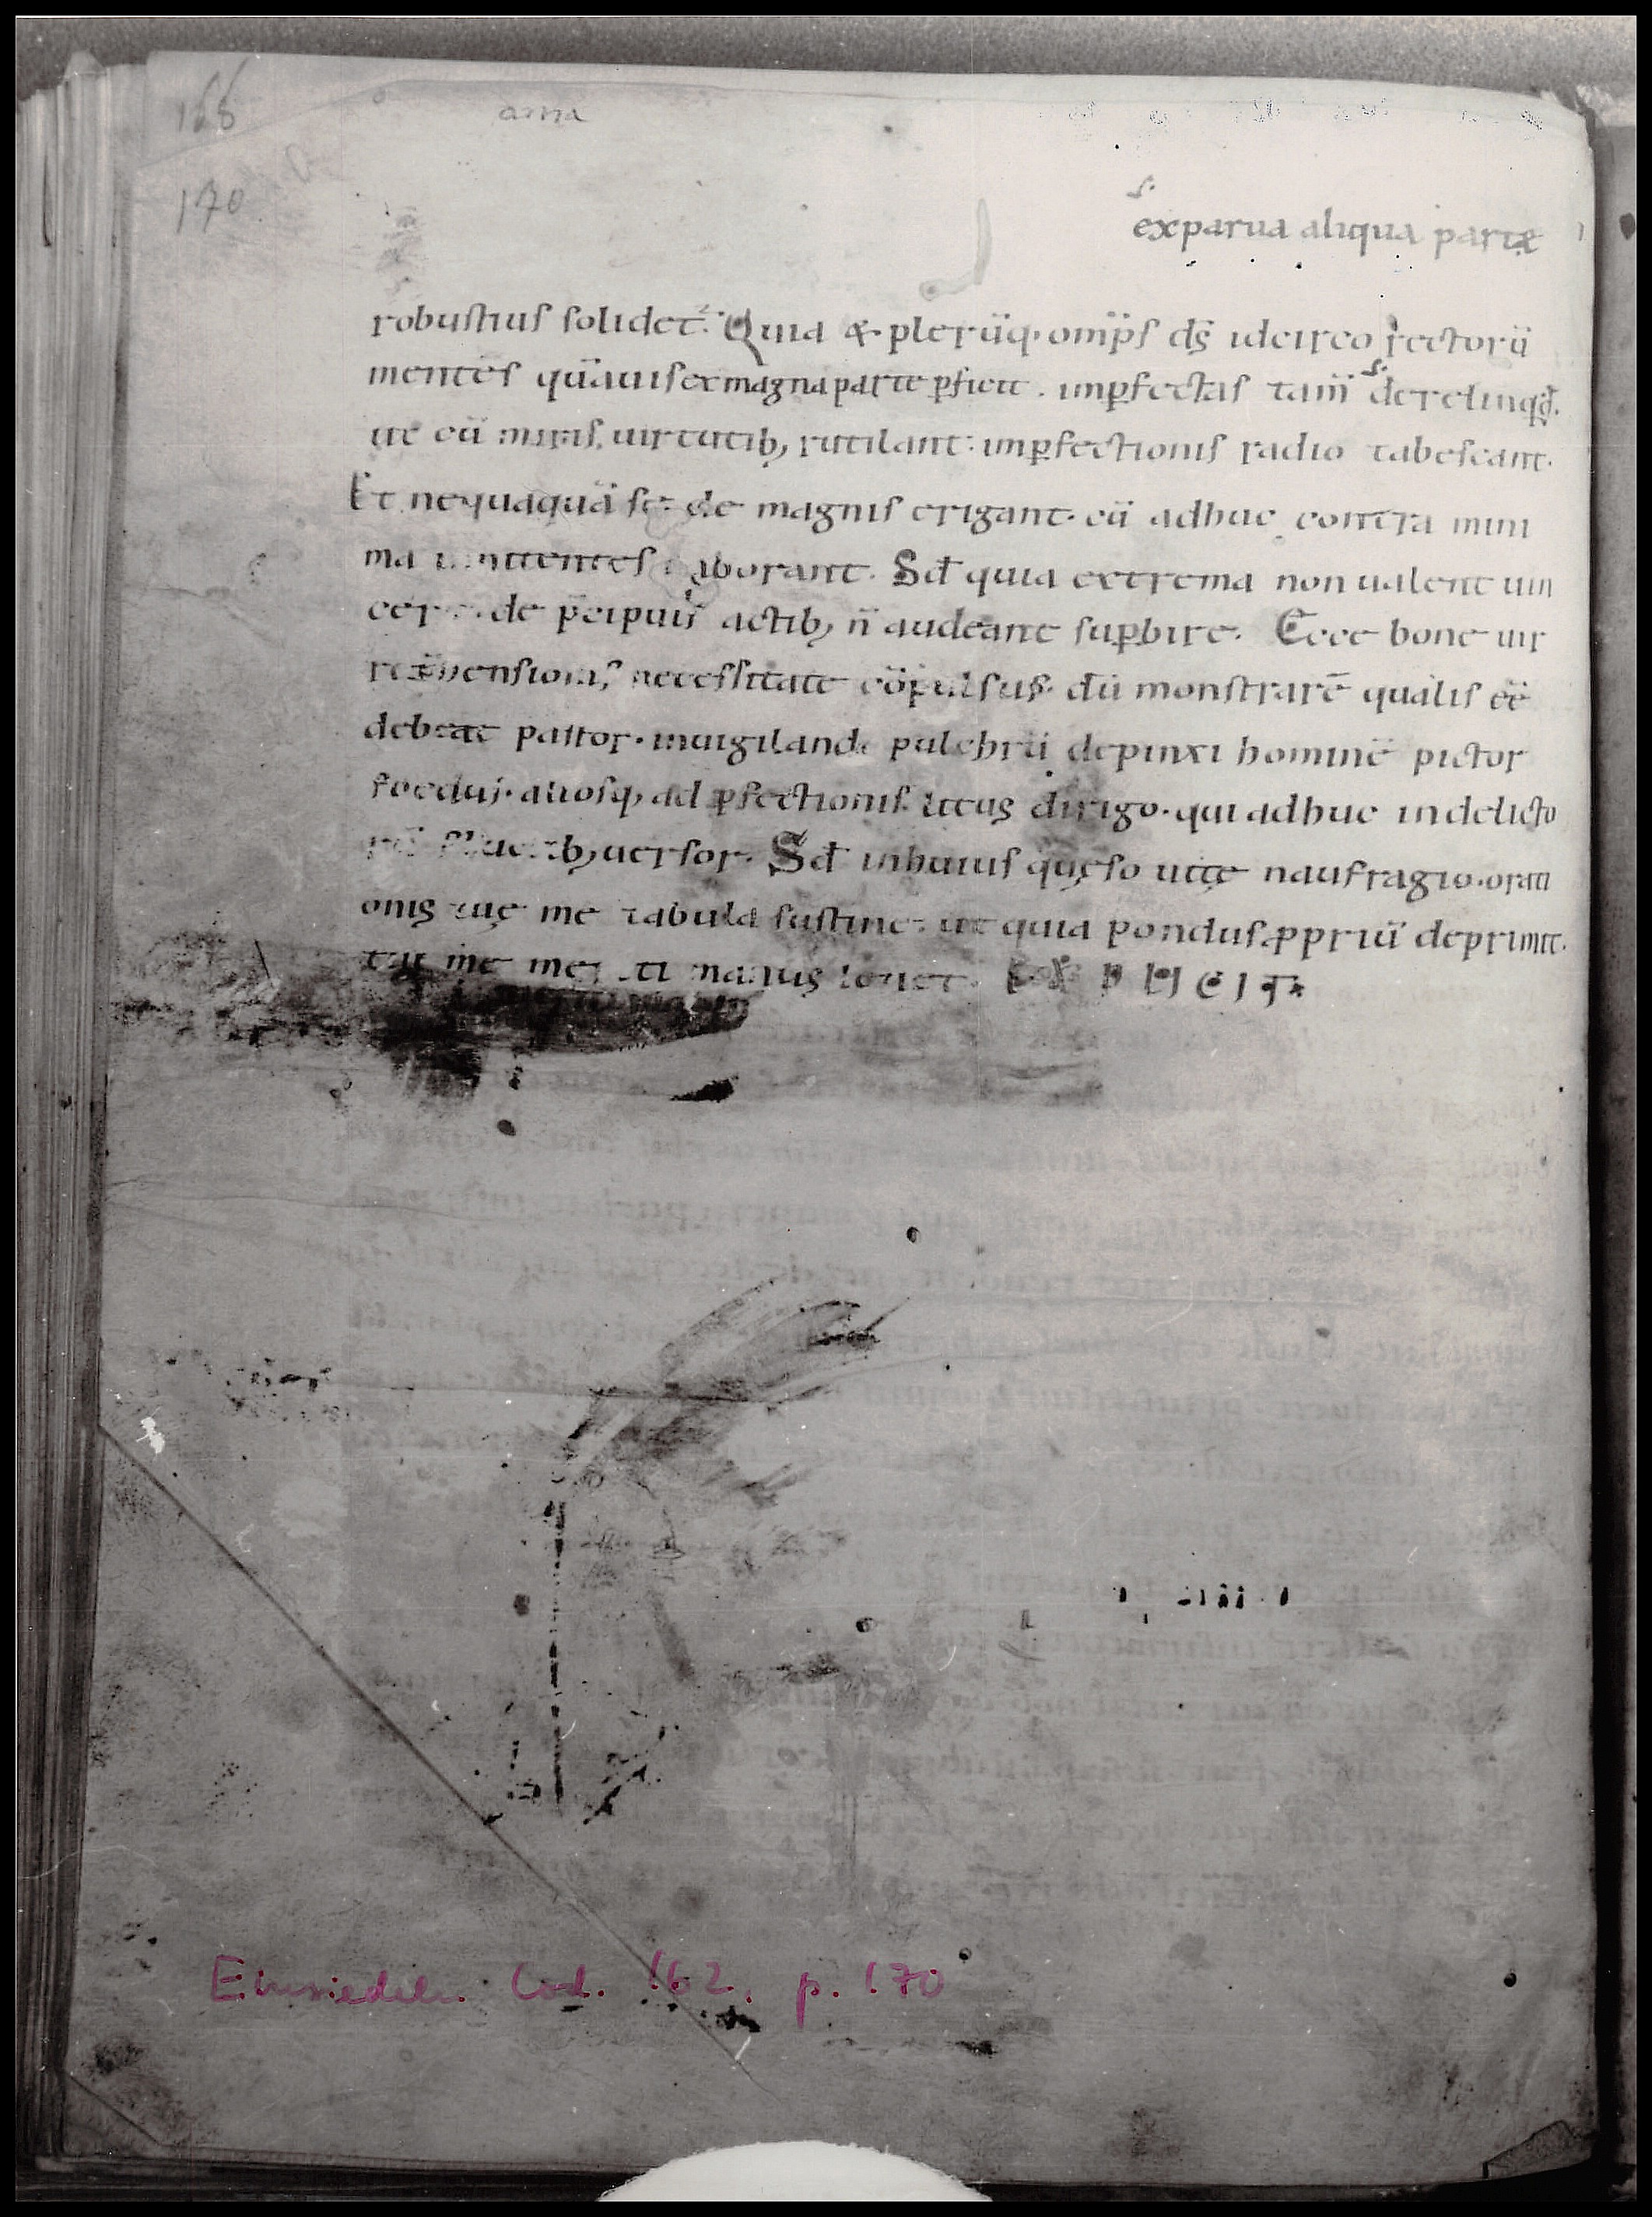 166
anna
170
ex parua aliqua parte
robustius solidet. Quia & pleru̅q; omi̅ps ds̅ idcirco rectoru̅
mentes qua̅uis ex magna parte p̲ficit. inp̲fectas tam̅ derelinqd̅.
ut cu̅ miris uirtutib; rutilant. inp̲fectionis radio tabescant.
Et nequaqua̅ se de magnis erigant. cu̅ adhuc contra mini
ma laborant. Sd̅ quia extrema non ualent uin
de p̅cipuis actib; n̅ audeant sup̲bire. Ecce bone uir
necessitate du̅ monstrare̅ qualis ee̅
debeat pastor. inuigilando pulchru̅ depinxi homine̅ pictor
foedus. aliosq; ad p̲fectionis litus dirigo. qui adhuc in delicto
uersor. Sd̅ in huius quęso uitę naufragio. orati
onis tuę me tabula sustine. ut quia pondus p̲priu̅ deprimit.
tui me meriti manus leuet. EXPLICIT
Einsiedeln Cod. 162, p. 170